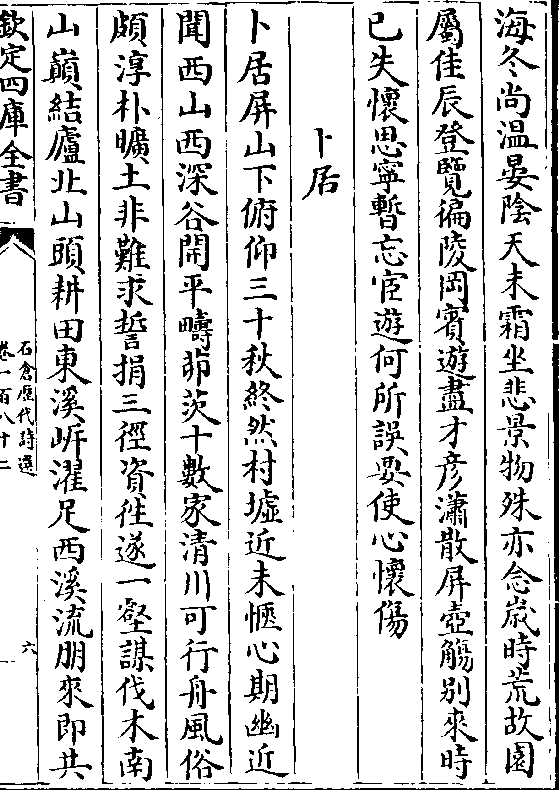 海冬尚溫晏陰天未霜坐悲景物殊亦念歲時荒故園
屬佳辰登覽徧陵岡賓遊盡才彦瀟散屏壺觴别來時
已失懷思寧暫忘宦遊何所誤要使心懷傷
卜居
卜居屏山下俯仰三十秋終然村墟近未愜心期幽近
聞西山西深谷開平疇茆茨十數家清川可行舟風俗
頗淳朴曠土非難求誓捐三徑資徃遂一壑謀伐木南
山巔結廬北山頭耕田東溪㟁濯足西溪流朋來即共
欽定四庫全書
石倉歷代詩選
卷一百八十二
六